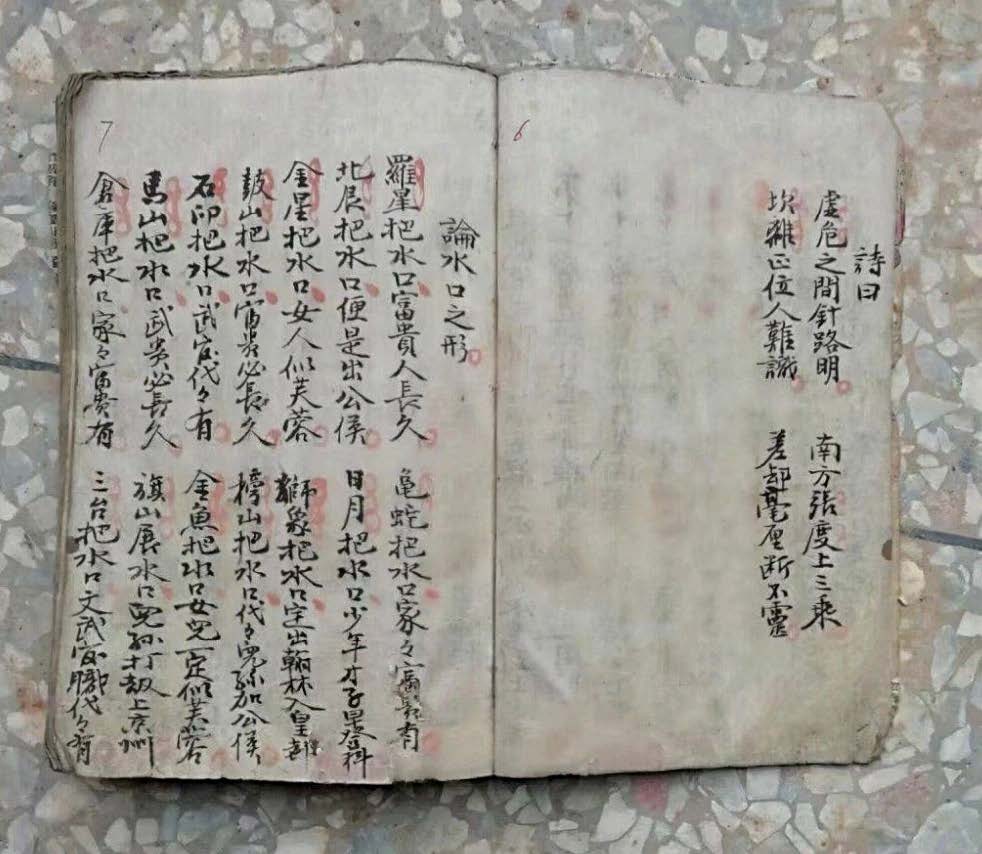 6
詩曰
虛危之間針路明 南方張度上三乘
坎離正位人難識 差却毫厘断不靈
7
論水口之形
羅星把水口富貴人長久 亀蛇把水口家々富貴有
北辰把水口便是出公侯 日月把水口少年才子早登科
金星把水口女人似芙蓉 獅象把水口定出翰林入皇都
鼓山把水口富貴必長久 榜山把水口代々児孫加公侯
石印把水口武官代々有 金魚把水口女児一定似芙蓉
馬山把水口武贵必長久 旗山展水口児孙打刼上京州
倉庫把水口家々富貴有 三台把水口文武官職代々有